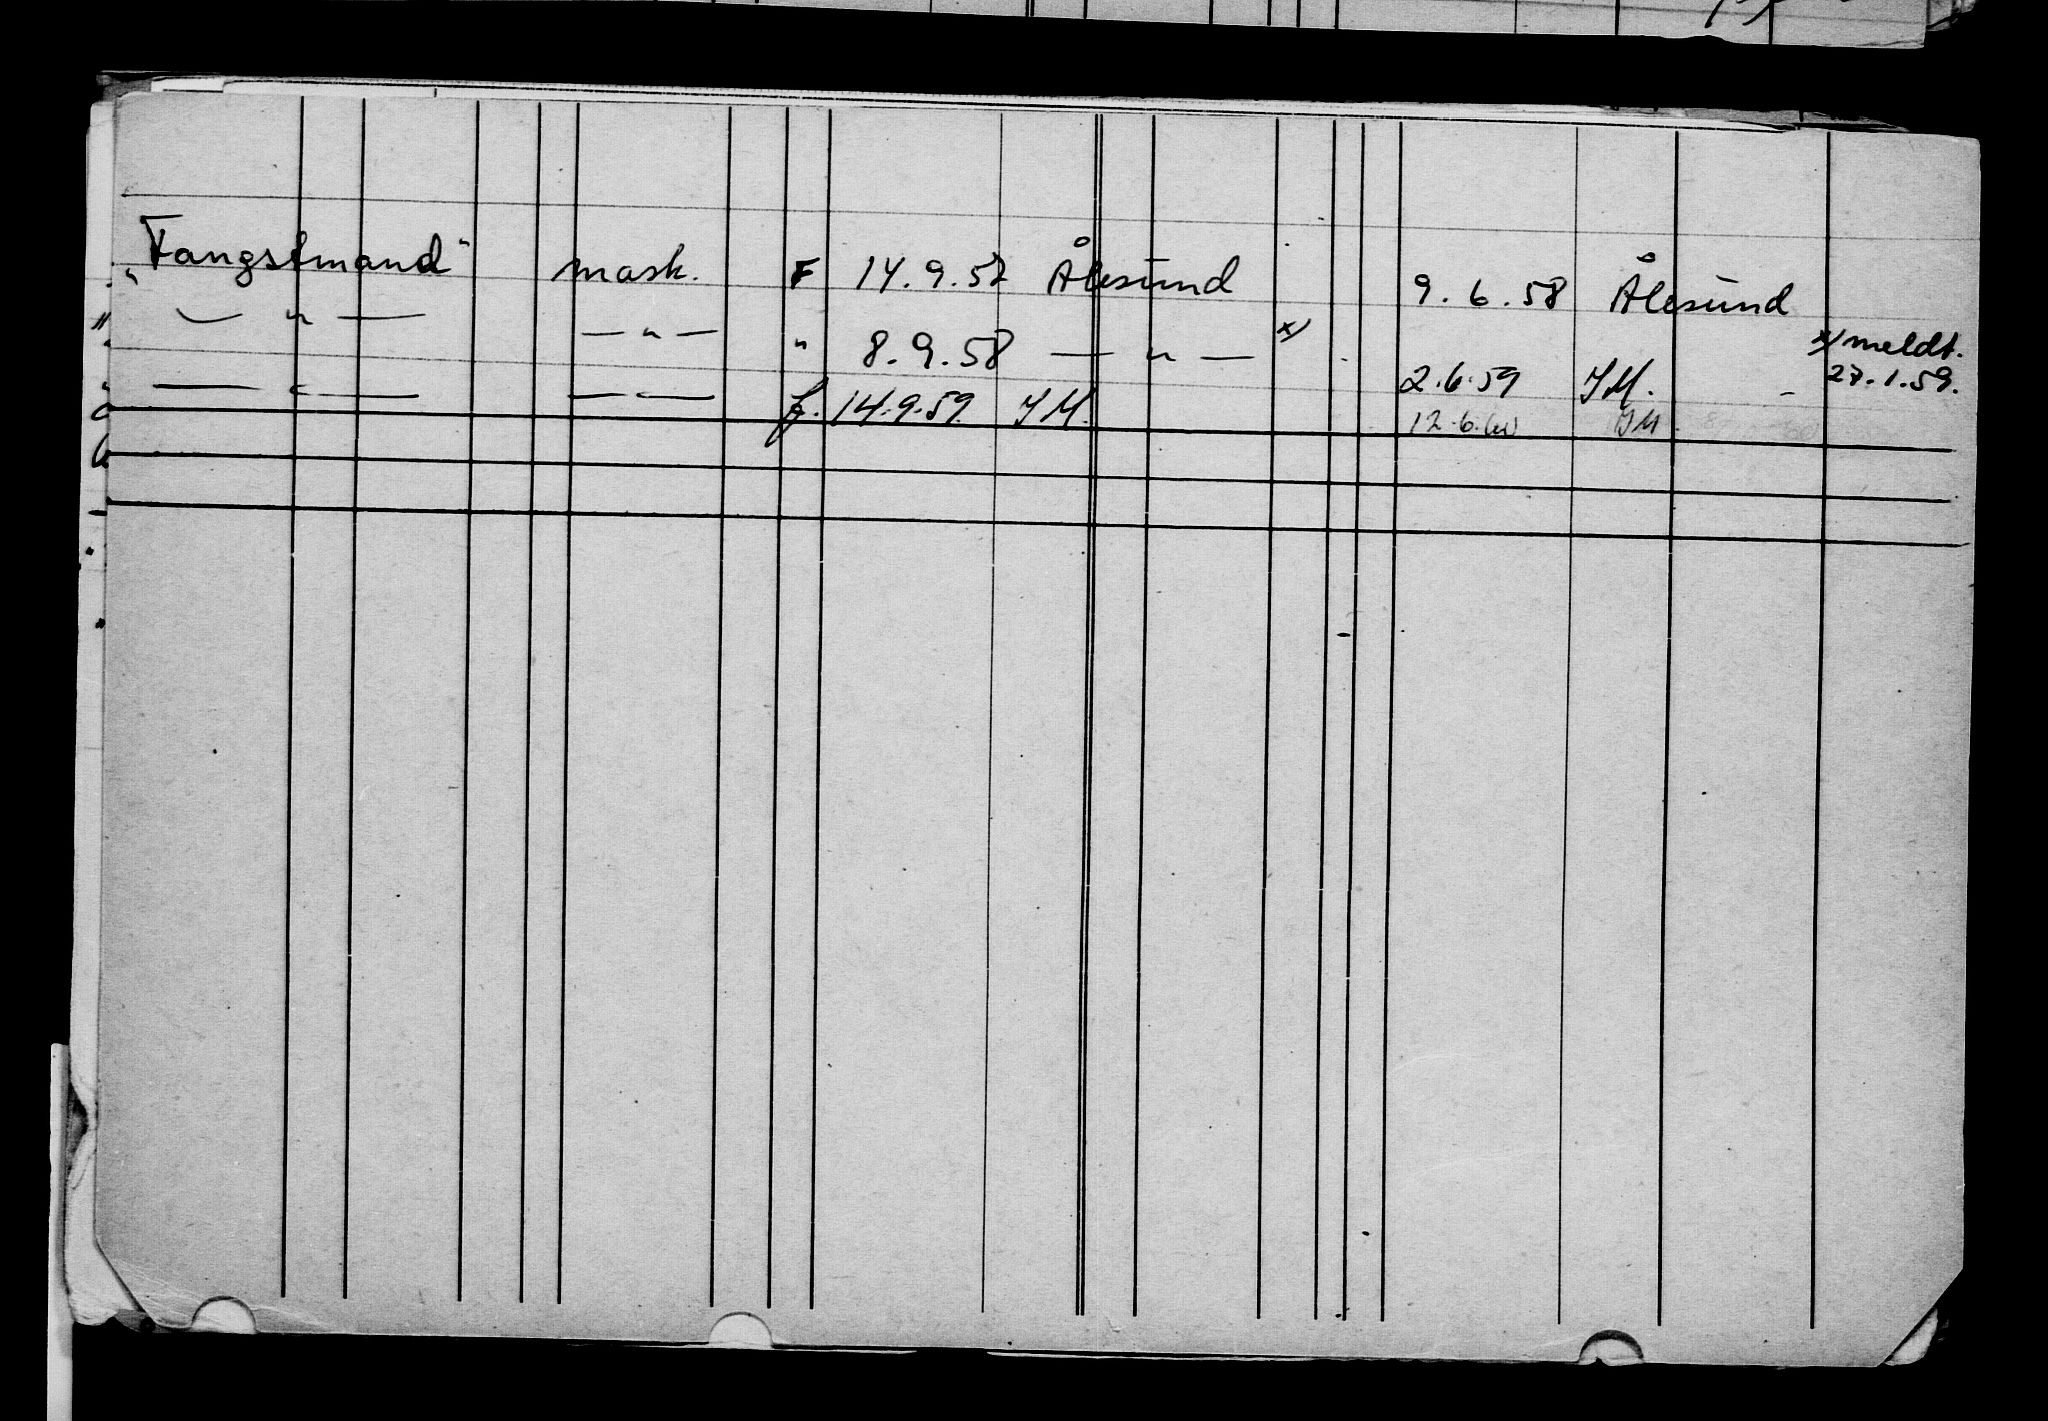 "Fangstmand" mask. F 14.9.57 Ålesund 9.6.58 Ålesund
— " — — " — " 8.9.58 — " — x) 2.6.59 IM. x/meldt. 27.1.59.
— " — — " — f. 14.9.59 IM. 12.6.60 IM.